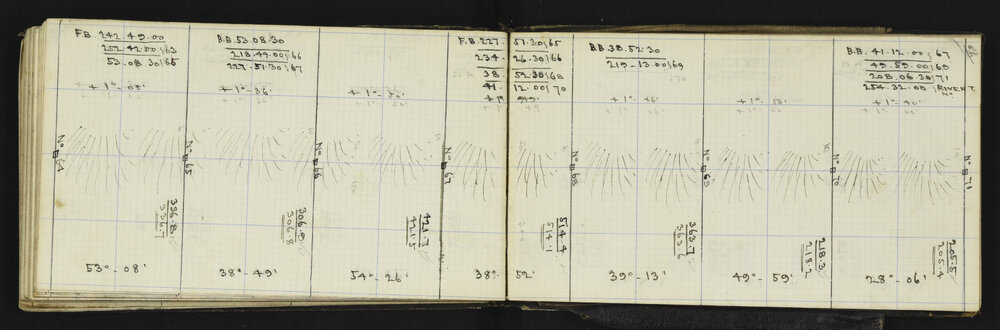 F.B. 242.49.00
252.42.00/63
53.08.30/65
B.B. 53.08.30
218.49.00/66
227.51.30/67
F.B. 227.51.30/65
234.26.30/66
38.52.30/68
41.12.00/70
B.B. 38.52.30
219-13.00/69
170
B.B. 41-12.00/67
49.59.00/69
208.06.30/71
254.32.00/RIVER T
No
+1°-05'
+1°-36'
+1°-50'
+1°
+1°-46'
+1°-50'
+1°-40'
No 64
No 65
No 66
No 67
No 68
No 69
No 70
No 71
336.8
336.7
306.9
306.8
421.7
421.5
514.4
514.1
363.7
363.6
218.3
218.2
205.5
205.4
53°-08'
38°-49'
54°-26'
38°-52'
39°-13'
49°-59'
28°-06'